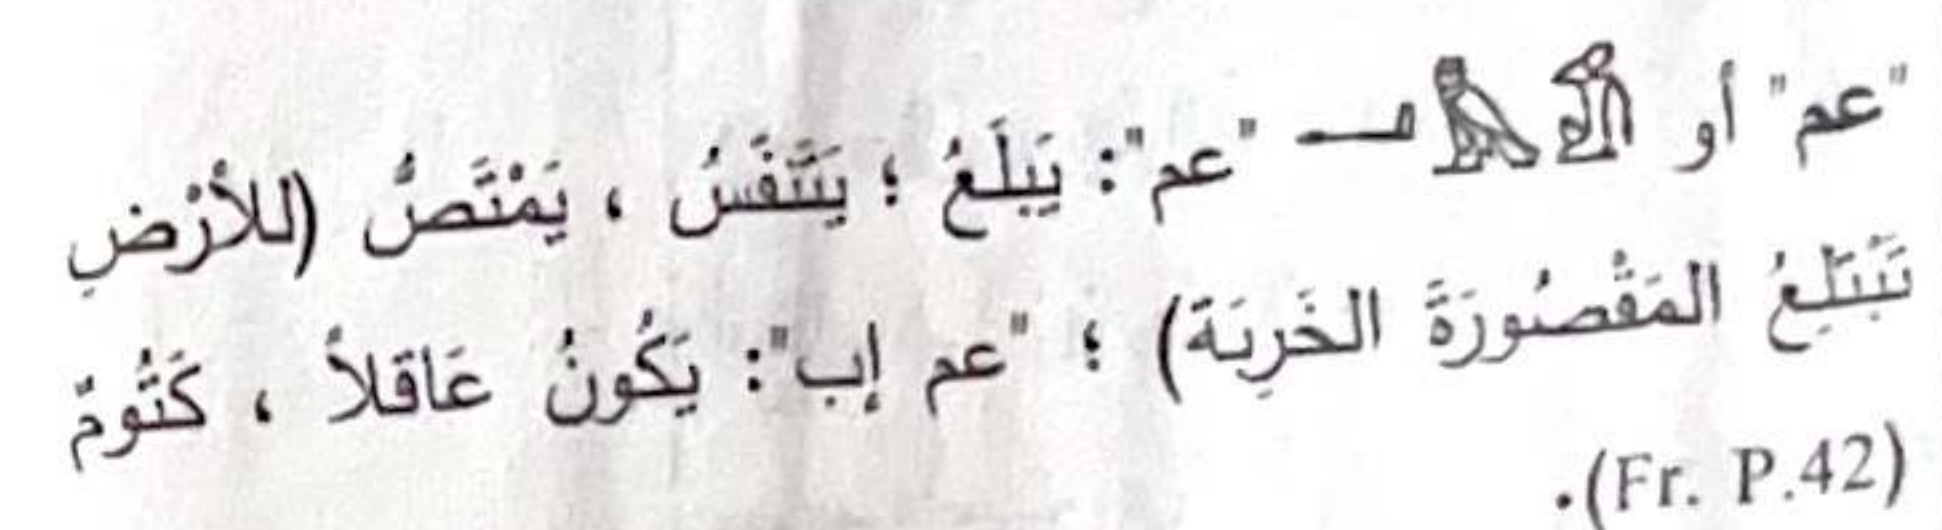 "عم" أو 𓀁𓅓𓂝 "عم": يَبلَعُ ؛ يَتَنَفَّسُ ، يَمْتَصُّ (للأرْضِ
تَبْتَلِعُ المَقْصُورَةَ الخَرِبَة) ؛ "عم إب": يَكُونُ عَاقلاً ، كَتُومٌ
(Fr. P.42).